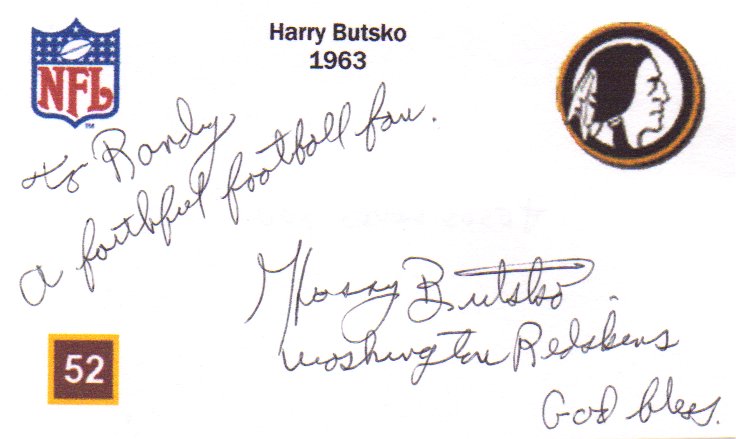 Harry Butsko
1963
NFL
TM
to Randy
a faithful football fan.
Harry Butsko
Washington Redskins
God bless.
52